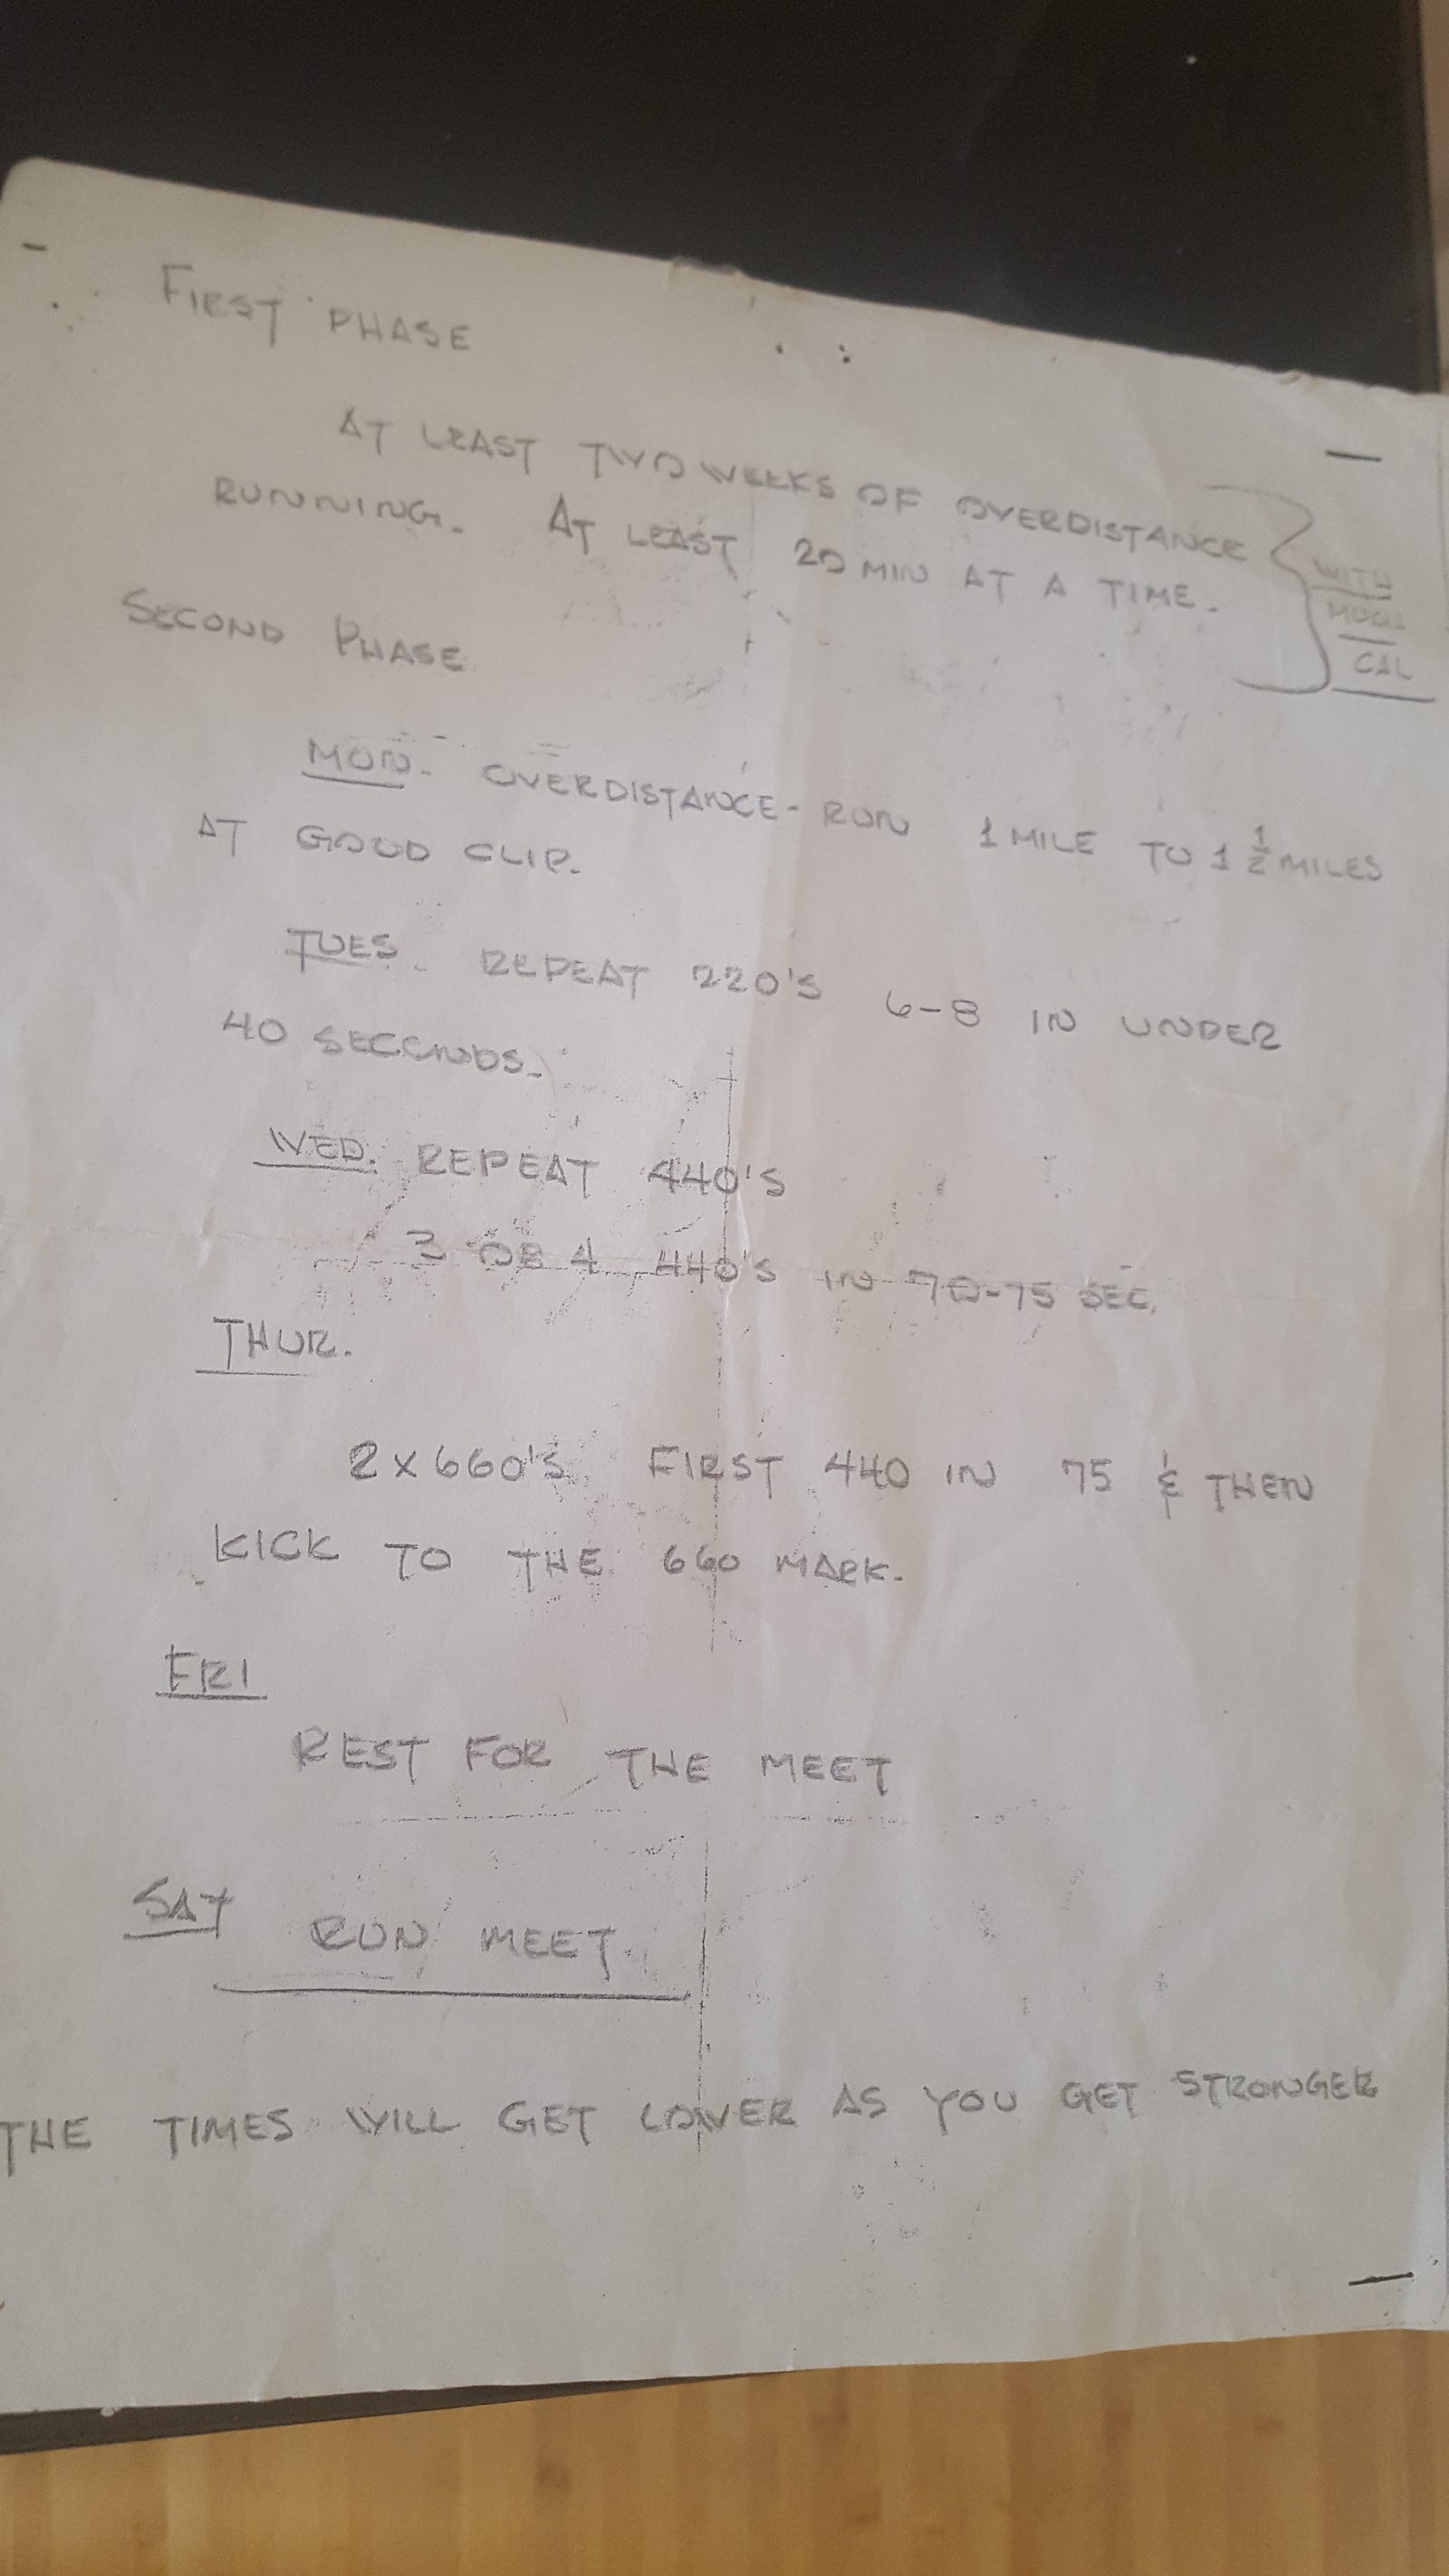 FIRST PHASE
AT LEAST TWO WEEKS OF OVERDISTANCE
RUNNING. AT LEAST 20 MIN AT A TIME.
WITH
CAL
SECOND PHASE
MON. OVERDISTANCE - RUN 1 MILE TO 1 1/2 MILES
AT GOOD CLIP.
TUES. REPEAT 220'S 6-8 IN UNDER
40 SECONDS.
WED. REPEAT 440'S
3 OR 4 440'S IN 70-75 SEC.
THUR.
2 X 660'S. FIRST 440 IN 75 & THEN
KICK TO THE 660 MARK.
FRI
REST FOR THE MEET
SAT RUN MEET.
THE TIMES WILL GET LOWER AS YOU GET STRONGER